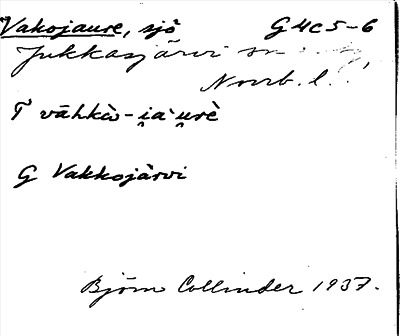 Vakojaure, sjö G4c5-6
Jukkasjärvi sn
Norrb. l.
T vāhkὼ-i̯a`u̯rè
G Vakkojärvi
Björn Collinder 1937.